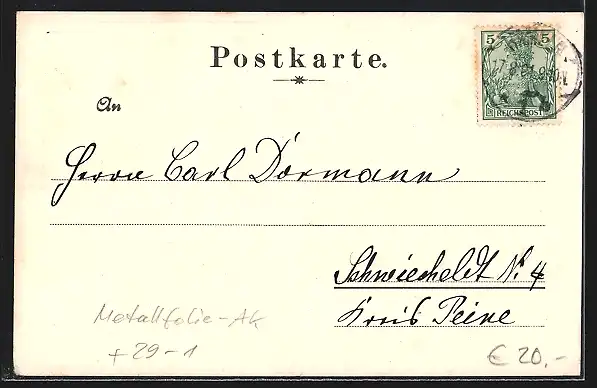 Postkarte.
5 5
REICHSPOST
An
Herrn Carl Dörmann
Schwiecheldt N. 4
Kreis Peine
Metallfolie-Ak
+29-1
€ 20,-